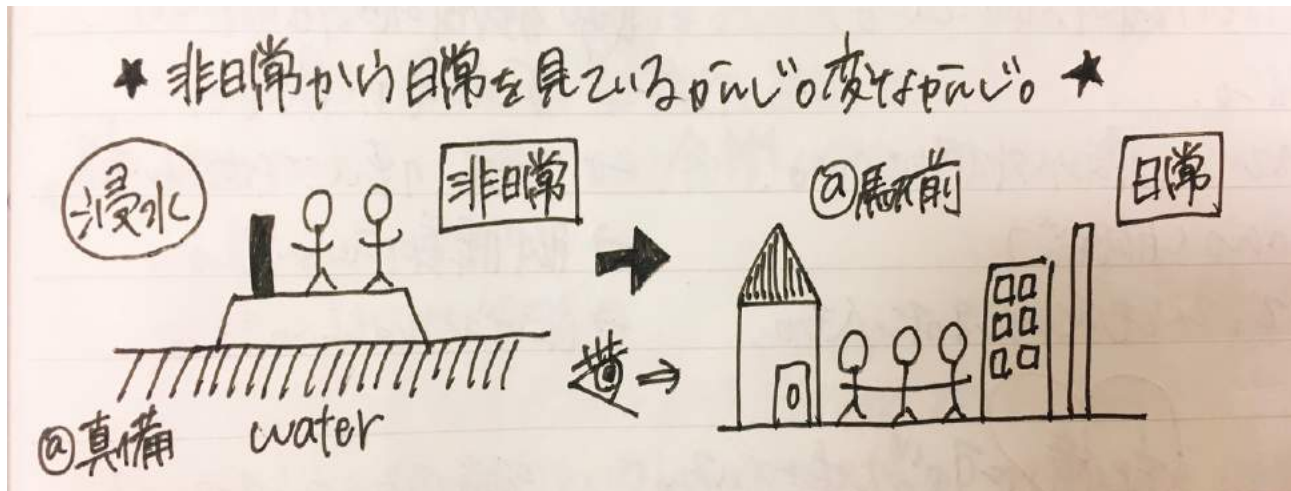 ★ 非日常から日常を見ているかんじ。変なかんじ。★
浸水
非日常
@駅前
日常
@真備
water